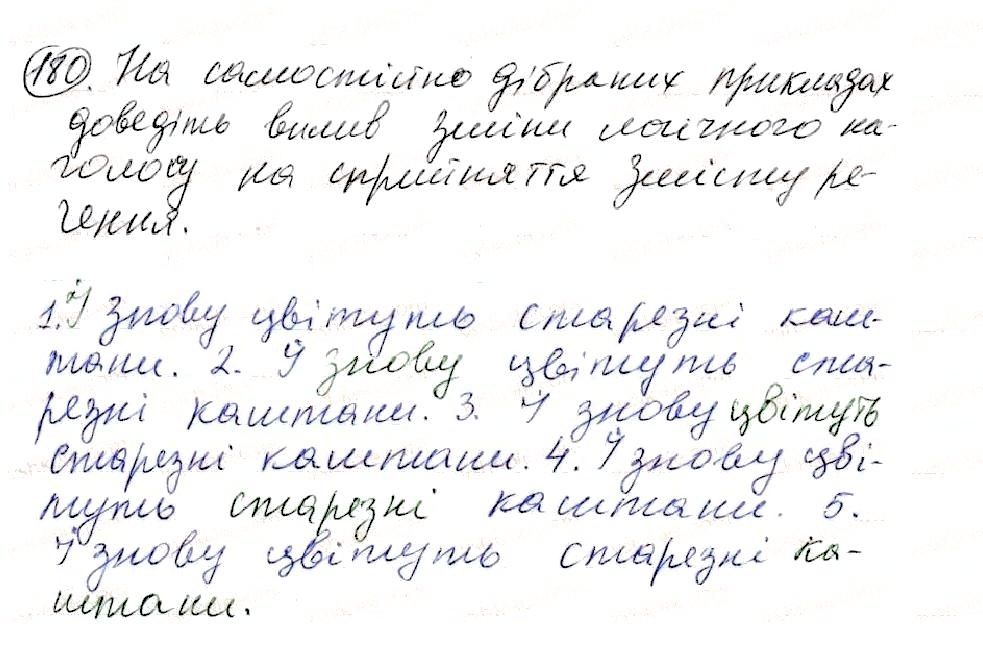 180. На самостійно дібраних прикладах
доведіть вплив зміни логічного на-
голосу на сприйняття змісту ре-
чення.
1. Й знову цвітуть старезні каш-
тани. 2. Й знову цвітуть ста-
резні каштани. 3. Й знову цвітуть
старезні каштани. 4. Й знову цві-
туть старезні каштани. 5.
Й знову цвітуть старезні ка-
штани.